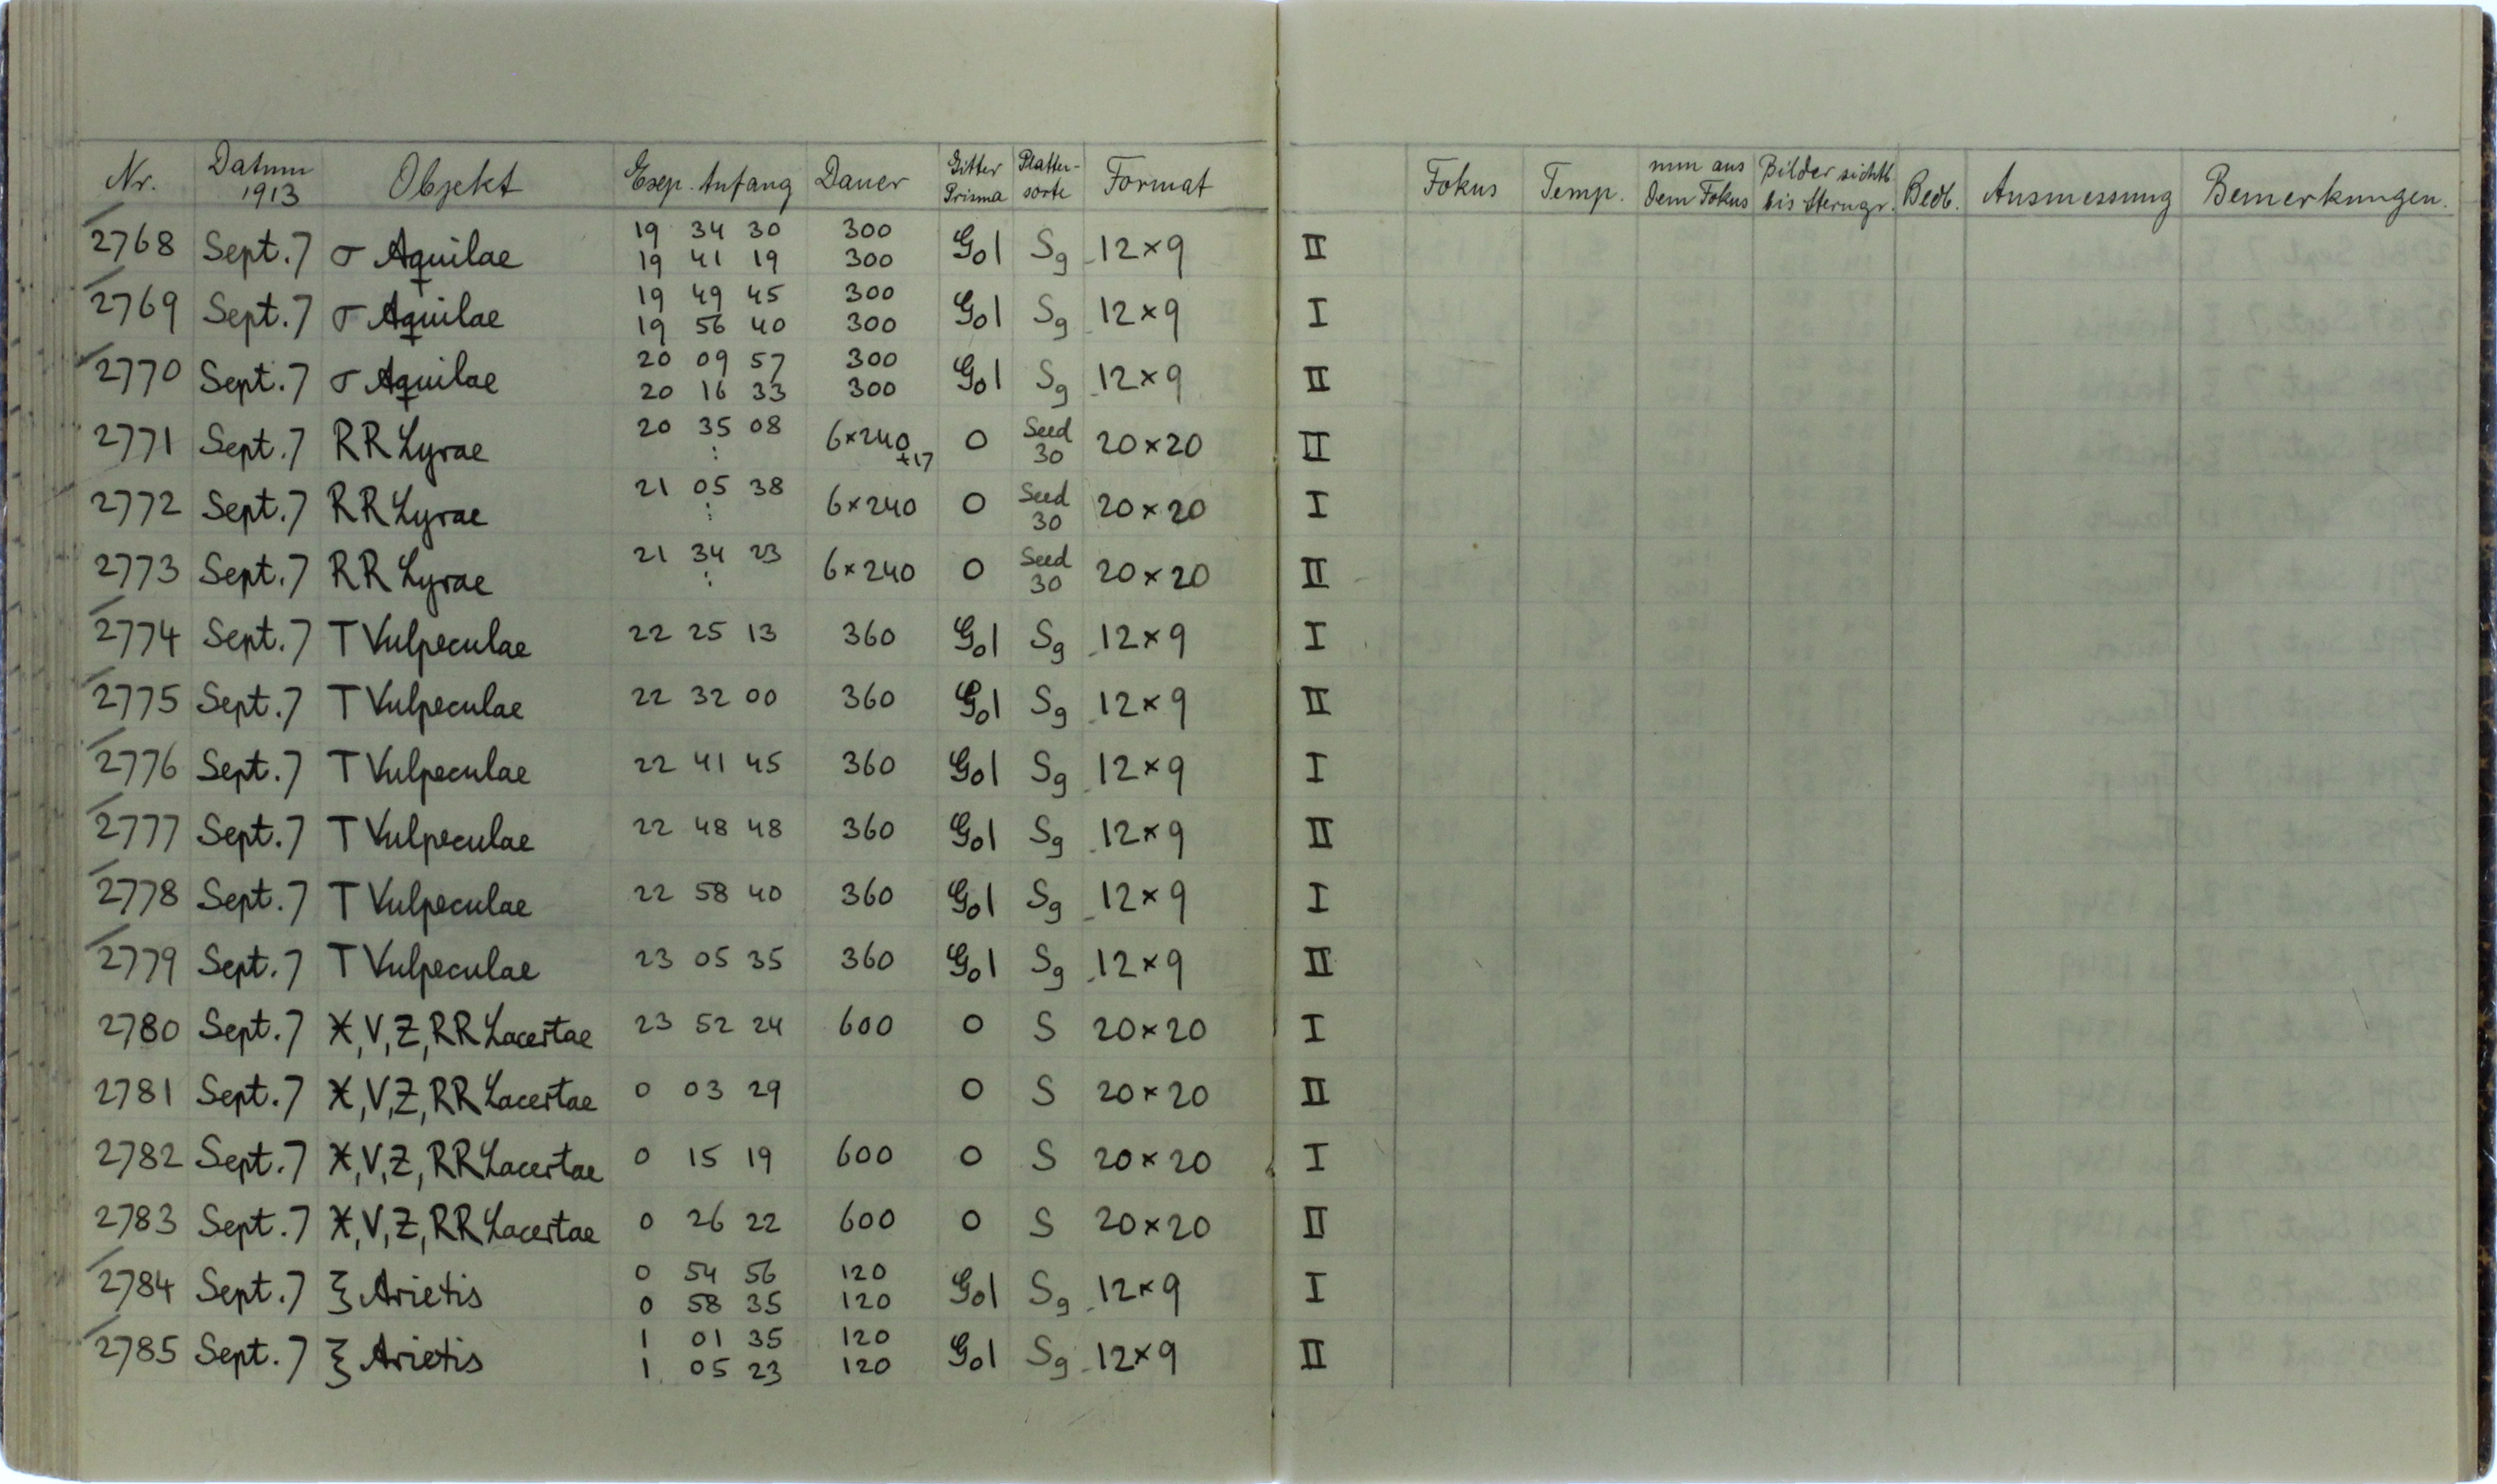 Nr. Datum 1913 Objekt Exp. Anfang Dauer Gitter Prisma Platten-sorte Format Fokus Temp. mm aus dem Fokus Bilder sichtb. bis Sterngr. Beob. Ausmessung Bemerkungen.
2768 Sept. 7 σ Aquilae 19 34 30 300 G01 Sg 12×9 II
19 41 19 300
2769 Sept. 7 σ Aquilae 19 49 45 300 G01 Sg 12×9 I
19 56 40 300
2770 Sept. 7 σ Aquilae 20 09 57 300 G01 Sg 12×9 II
20 16 33 300
2771 Sept. 7 RR Lyrae 20 35 08 6×240 +17 0 Seed 30 20×20 II
:
2772 Sept. 7 RR Lyrae 21 05 38 6×240 0 Seed 30 20×20 I
:
2773 Sept. 7 RR Lyrae 21 34 23 6×240 0 Seed 30 20×20 II
:
2774 Sept. 7 T Vulpeculae 22 25 13 360 G01 Sg 12×9 I
2775 Sept. 7 T Vulpeculae 22 32 00 360 G01 Sg 12×9 II
2776 Sept. 7 T Vulpeculae 22 41 45 360 G01 Sg 12×9 I
2777 Sept. 7 T Vulpeculae 22 48 48 360 G01 Sg 12×9 II
2778 Sept. 7 T Vulpeculae 22 58 40 360 G01 Sg 12×9 I
2779 Sept. 7 T Vulpeculae 23 05 35 360 G01 Sg 12×9 II
2780 Sept. 7 X, V, Z, RR Lacertae 23 52 24 600 0 S 20×20 I
2781 Sept. 7 X, V, Z, RR Lacertae 0 03 29 0 S 20×20 II
2782 Sept. 7 X, V, Z, RR Lacertae 0 15 19 600 0 S 20×20 I
2783 Sept. 7 X, V, Z, RR Lacertae 0 26 22 600 0 S 20×20 II
2784 Sept. 7 ξ Arietis 0 54 56 120 G01 Sg 12×9 I
0 58 35 120
2785 Sept. 7 ξ Arietis 1 01 35 120 G01 Sg 12×9 II
1 05 23 120